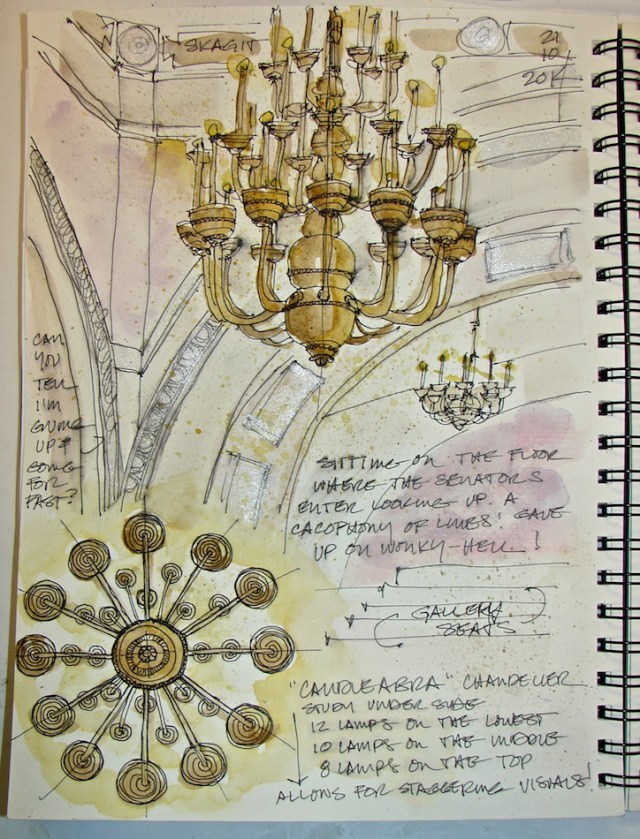 SKAGIT
21
10
2014
CAN
YOU
TELL
I'M
GIVING
UP &
GOING
FOR
FAST?
SITTING ON THE FLOOR
WHERE THE SENATORS
ENTER LOOKING UP. A
CACOPHONY OF LINES! GAVE
UP ON WONKY-HELL!
GALLERY
SEATS
"CANDLEABRA" CHANDELIER
STUDY UNDER SIDE
12 LAMPS ON THE LOWEST
10 LAMPS ON THE MIDDLE
8 LAMPS ON THE TOP
ALLOWS FOR STAGGERING VISUALS!